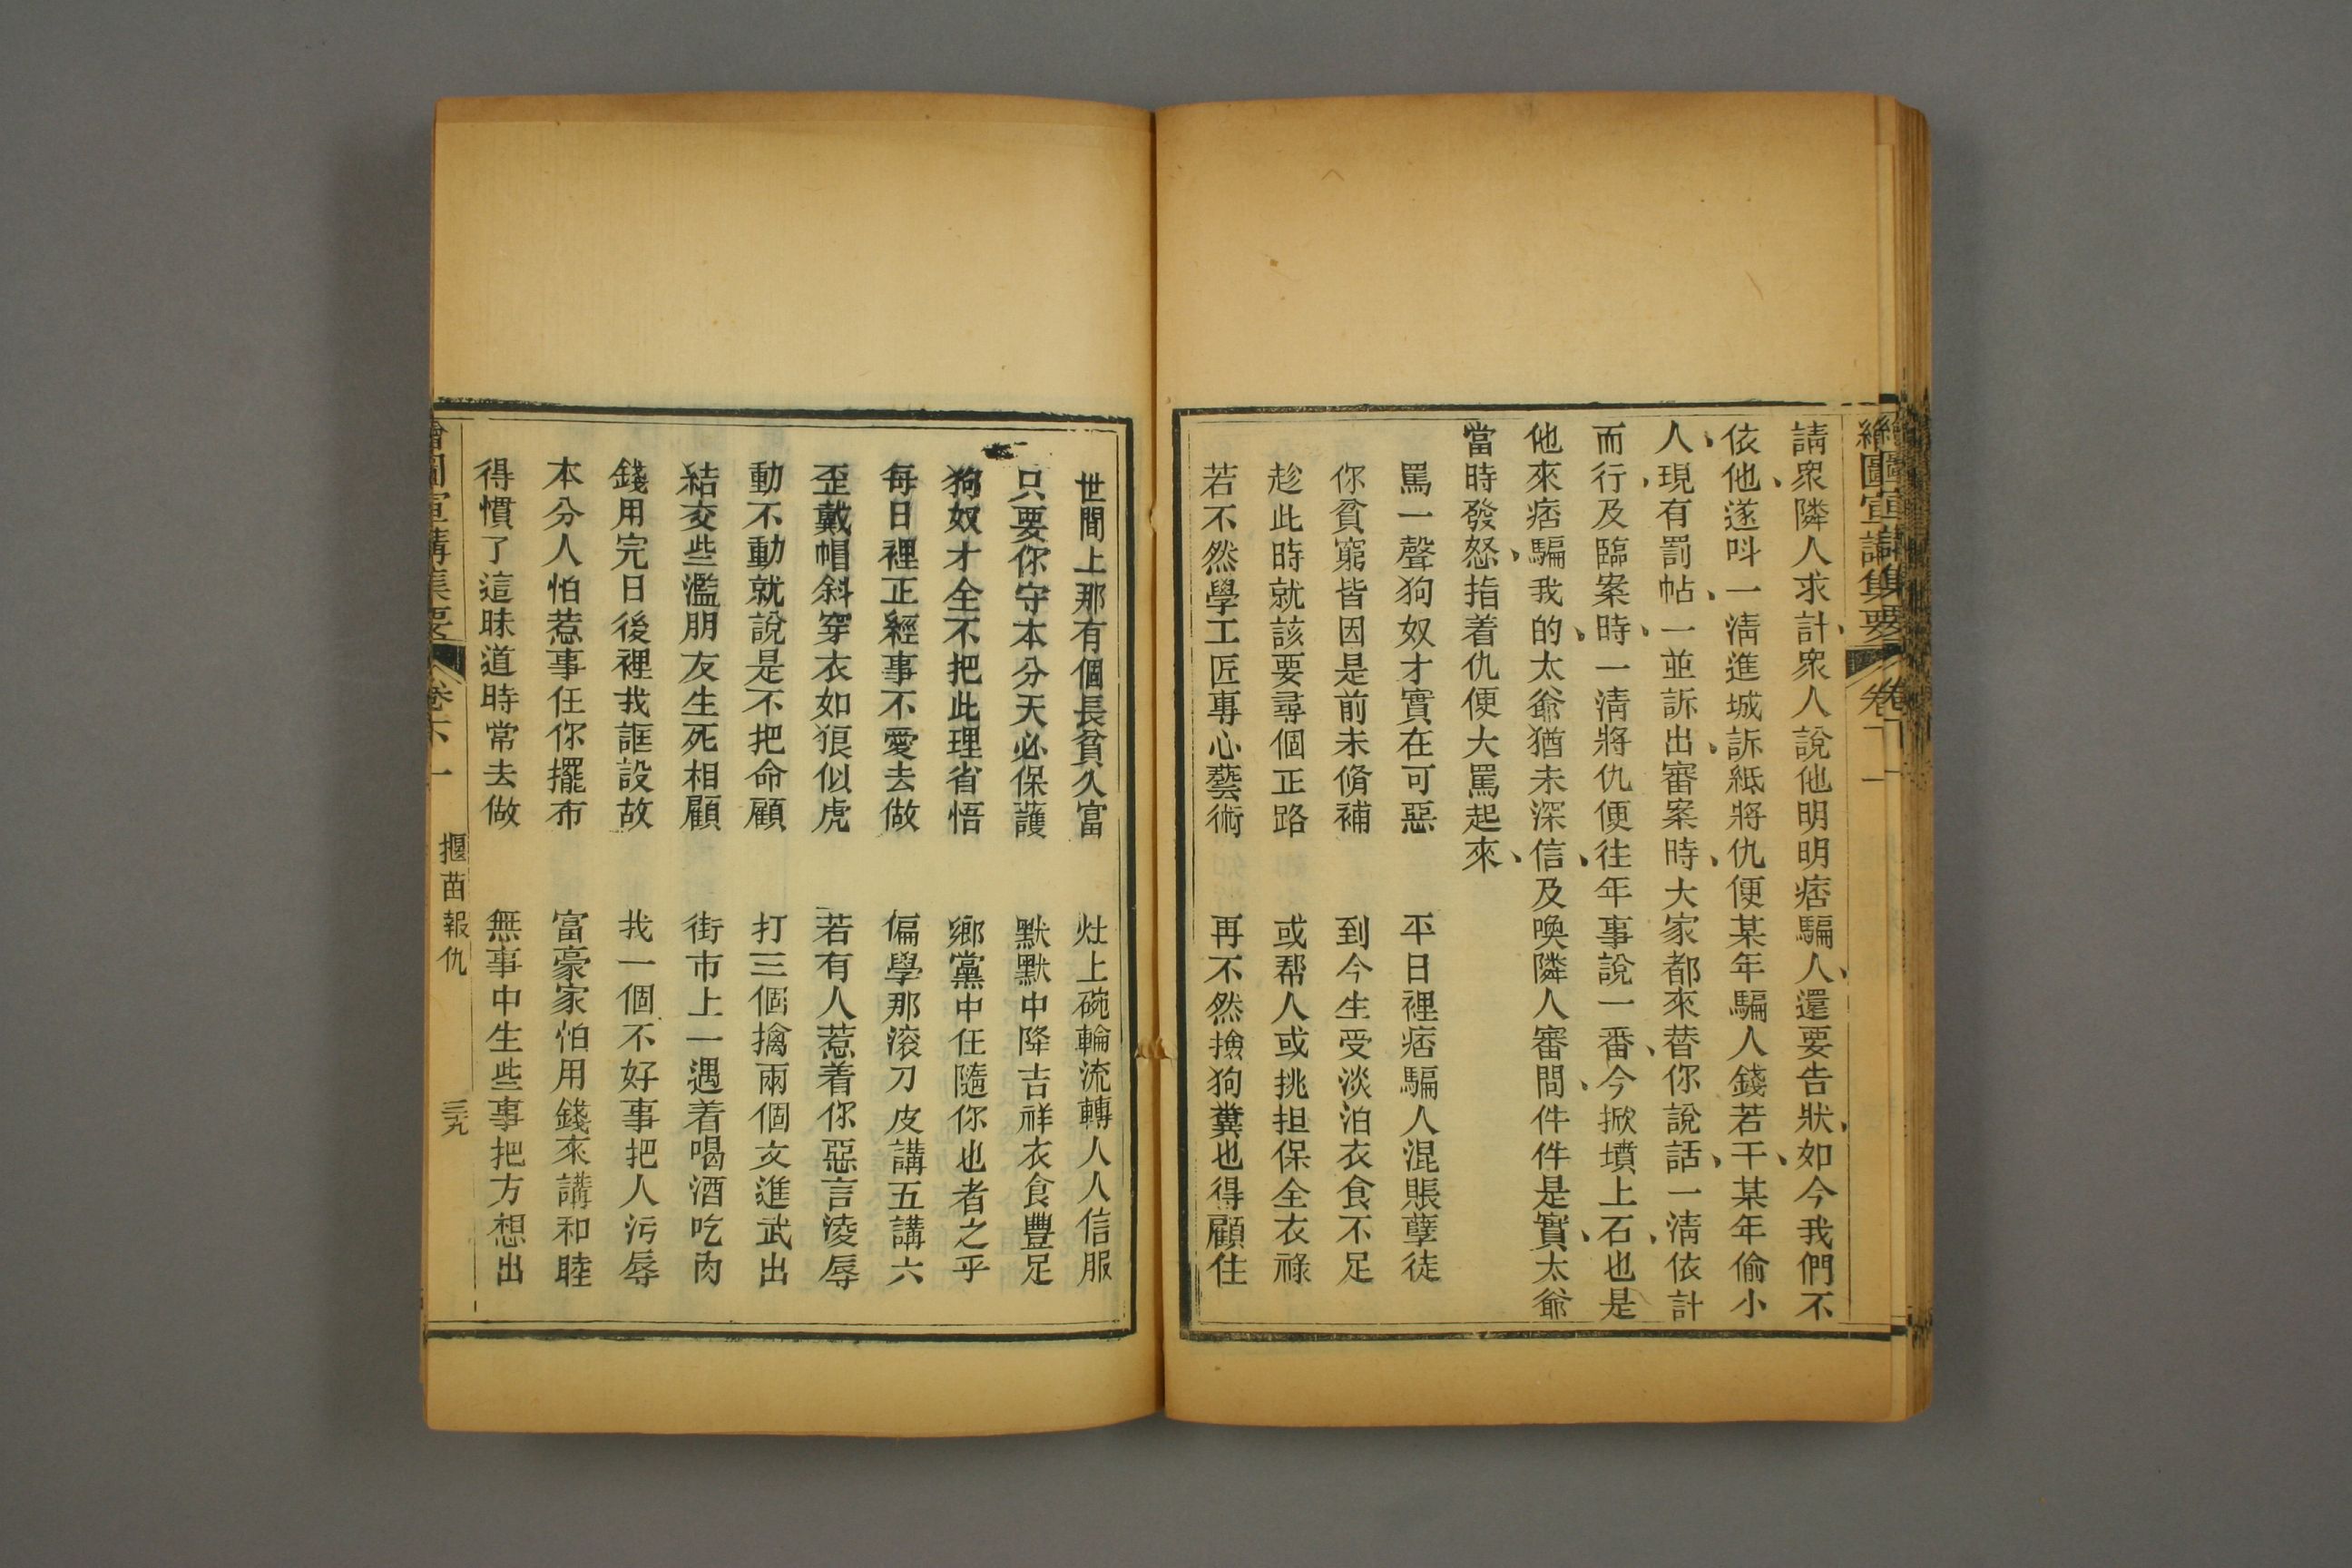 繪圖宣講集要 卷十一
請衆隣人求計、衆人說他明明痞騙人、還要告狀、如今我們不
依他、遂呌一淸進城訴紙將仇便某年騙人錢若干、某年偷小
人、現有罰帖、一並訴出、審案時、大家都來替你說話、一淸依計
而行、及臨案時、一淸將仇便往年事說一番、今掀墳上石、也是
他來痞騙我的、太爺猶未深信、及喚隣人審問、件件是實、太爺
當時發怒、指着仇便大罵起來、
罵一聲狗奴才實在可惡 平日裡痞騙人混賬孽徒
你貧窮皆因是前未脩補 到今生受淡泊衣食不足
趁此時就該要尋個正路 或帮人或挑担保全衣祿
若不然學工匠專心藝術 再不然撿狗糞也得顧住
世間上那有個長貧久富 灶上碗輪流轉人人信服
只要你守本分天必保護 默默中降吉祥衣食豐足
狗奴才全不把此理省悟 鄉黨中任隨你也者之乎
每日裡正經事不愛去做 偏學那滚刀皮講五講六
歪戴帽斜穿衣如狼似虎 若有人惹着你惡言淩辱
動不動就說是不把命顧 打三個擒兩個文進武出
結交些濫朋友生死相顧 街市上一遇着喝酒吃肉
錢用完日後裡我誆設故 找一個不好事把人汚辱
本分人怕惹事任你擺布 富豪家怕用錢來講和睦
得慣了這昧道時常去做 無事中生些事把方想出
繪圖宣講集要 卷十一 揠苗報仇 三九